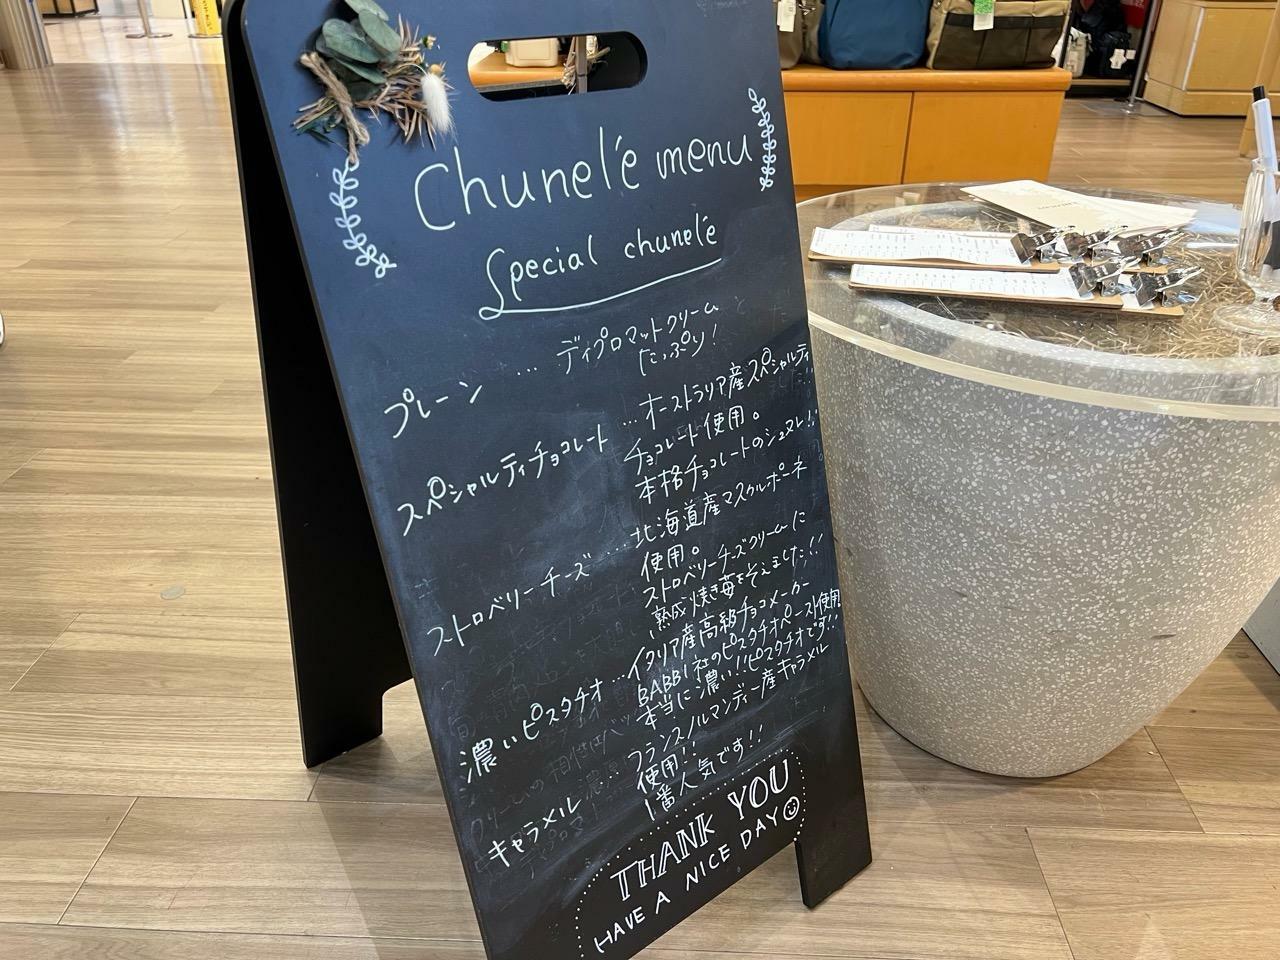 Chunelé menu
Special chunelé
プレーン … ディプロマットクリーム
たっぷり!
スペシャルティチョコレート … オーストラリア産スペシャルティ
チョコレート使用。
本格チョコレートのシュヌレ!!
ストロベリーチーズ … 北海道産マスカルポーネ
使用。
ストロベリーチーズクリームに
熟成焼き苺をそえました!!
濃いピスタチオ … イタリア産高級チョコメーカー
BABBI社のピスタチオペースト使用
本当に濃い!!ピスタチオです!!
キャラメル … フランスノルマンディー産キャラメル
使用!!
1番人気です!!
THANK YOU
HAVE A NICE DAY